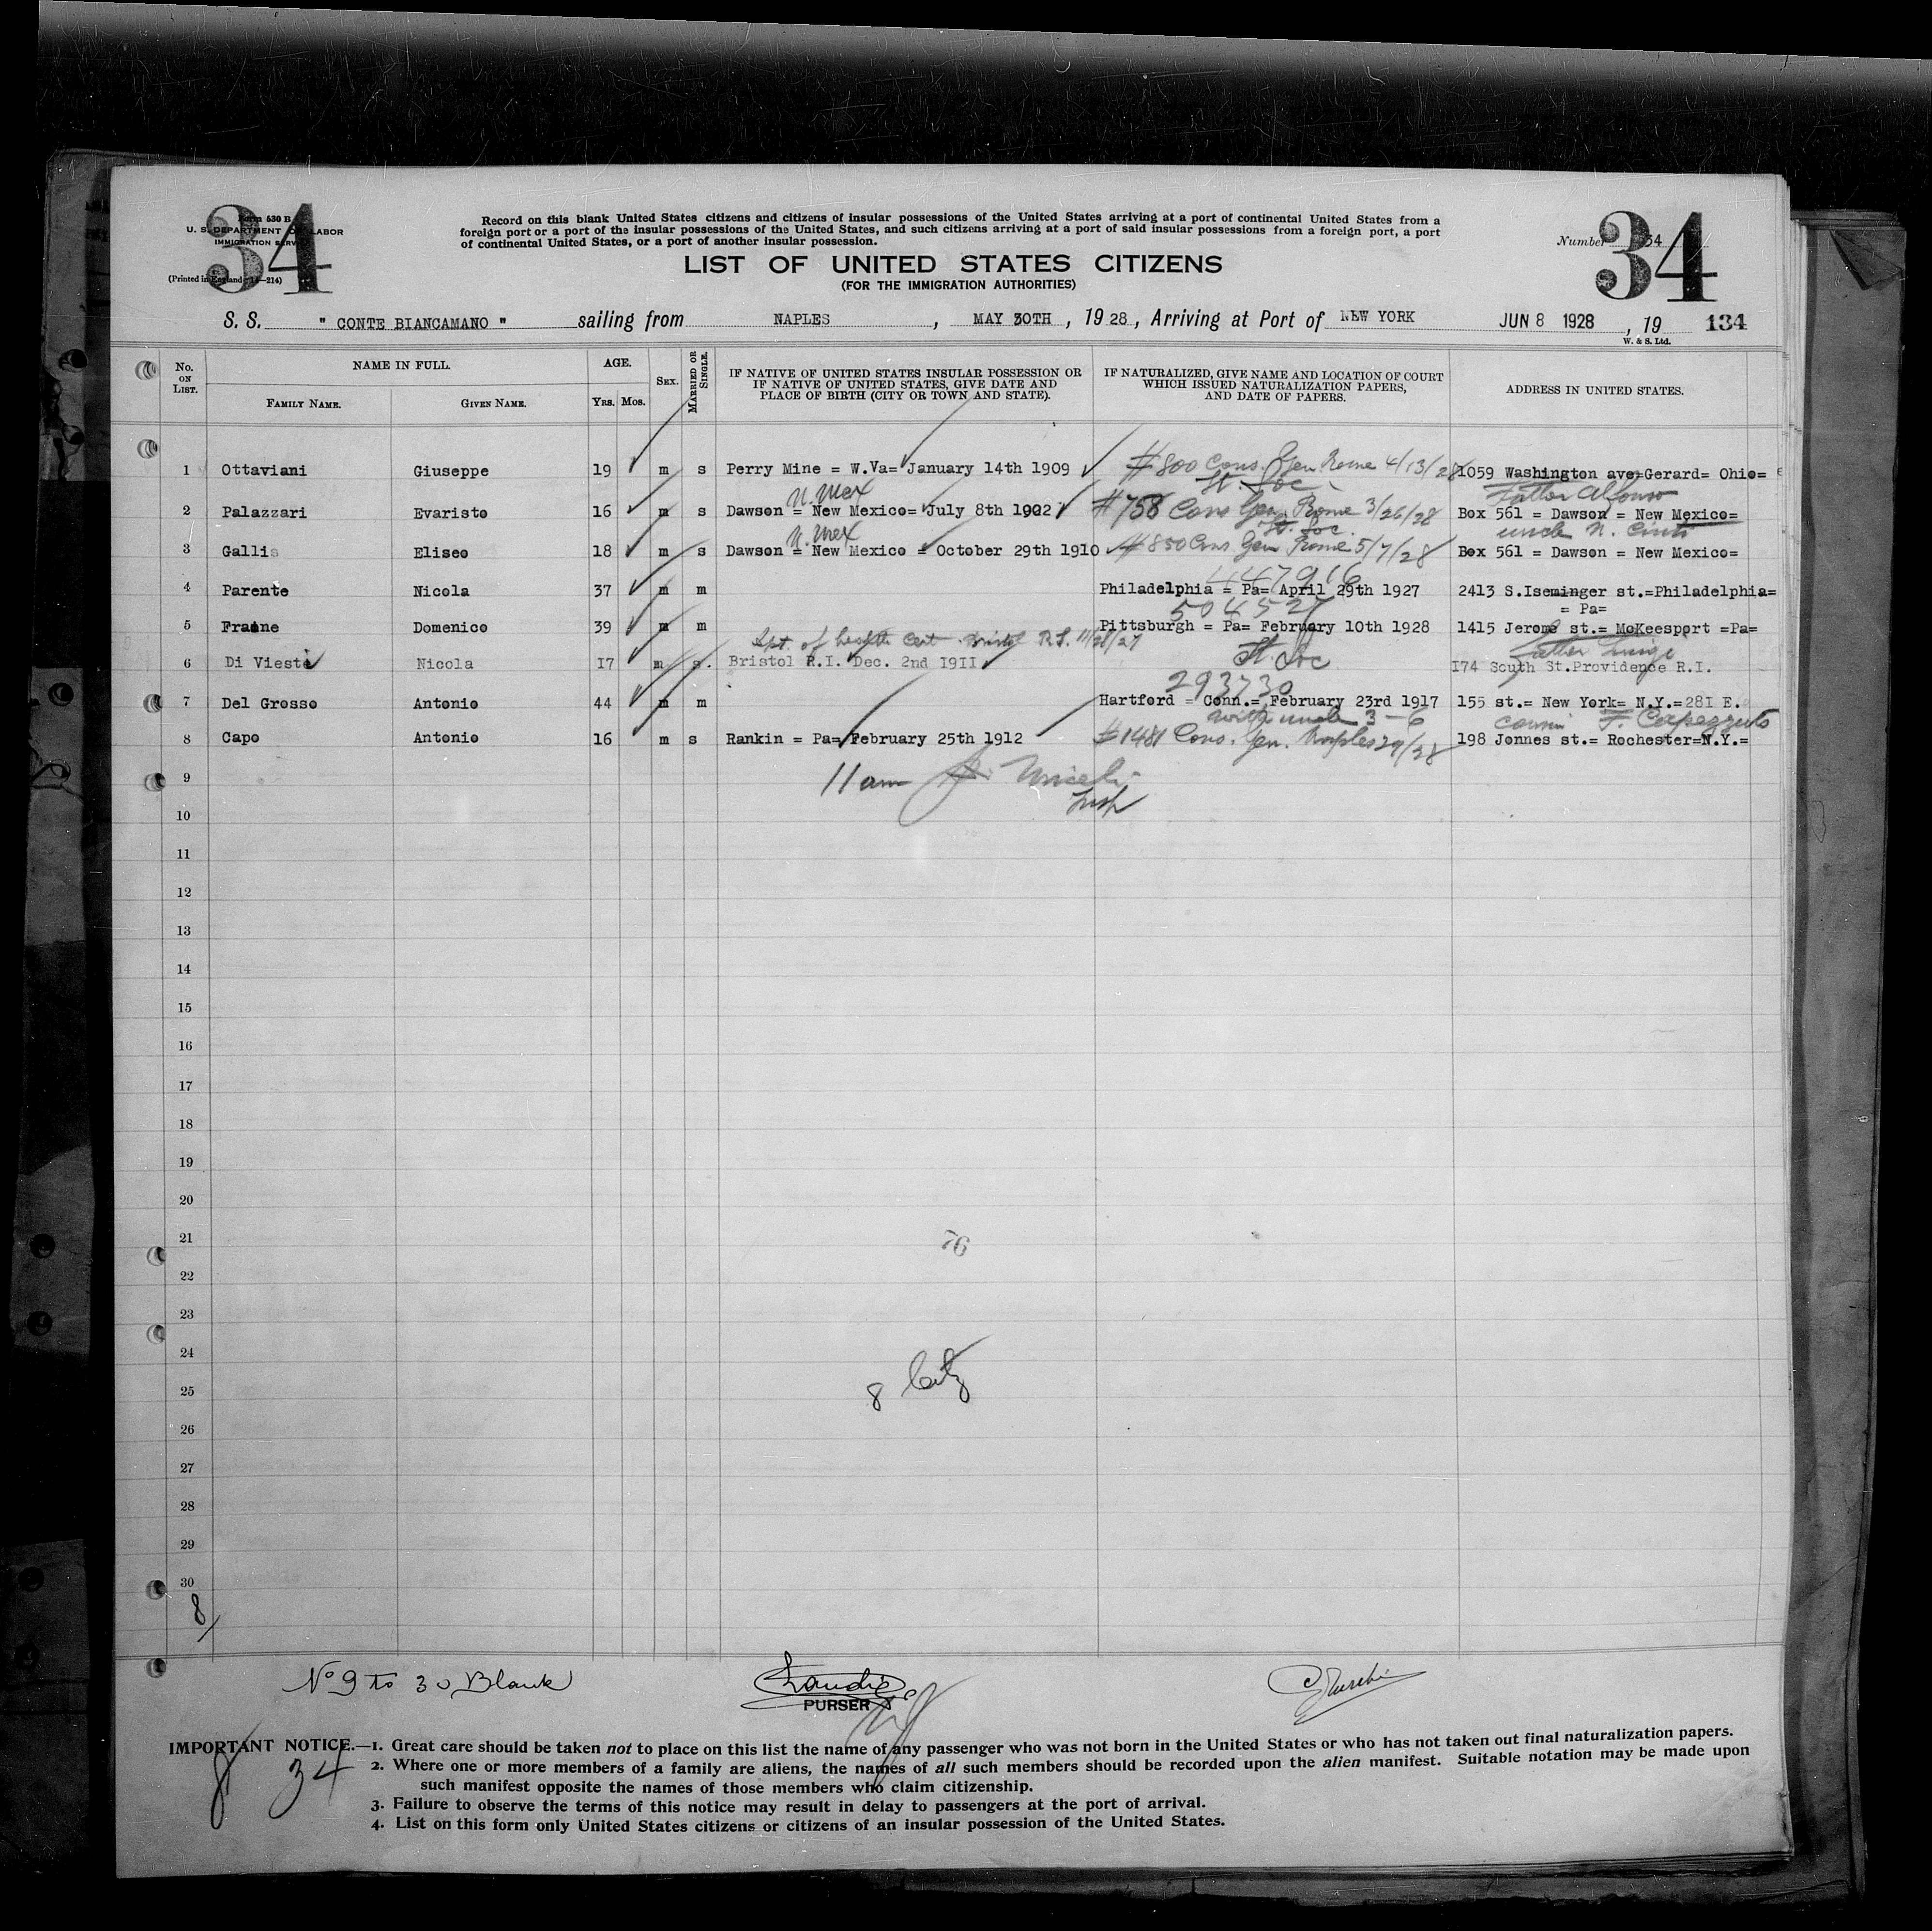 34
Form 630 B
U. S. DEPARTMENT OF LABOR
IMMIGRATION SERVICE
(Printed in England
Record on this blank United States citizens and citizens of insular possessions of the United States arriving at a port of continental United States from a
foreign port or a port of the insular possessions of the United States, and such citizens arriving at a port of said insular possessions from a foreign port, a port
of continental United States, or a port of another insular possession.
Number 34
34
LIST OF UNITED STATES CITIZENS
(FOR THE IMMIGRATION AUTHORITIES)
S. S. " CONTE BIANCAMANO " sailing from NAPLES , MAY 30TH , 1928 , Arriving at Port of NEW YORK JUN 8 1928 , 19 134
W. & S. Ltd.
No. ON LIST. NAME IN FULL. AGE. SEX. MARRIED OR SINGLE. IF NATIVE OF UNITED STATES INSULAR POSSESSION OR IF NATIVE OF UNITED STATES, GIVE DATE AND PLACE OF BIRTH (CITY OR TOWN AND STATE). IF NATURALIZED, GIVE NAME AND LOCATION OF COURT WHICH ISSUED NATURALIZATION PAPERS, AND DATE OF PAPERS. ADDRESS IN UNITED STATES.
FAMILY NAME. GIVEN NAME. YRS. MOS.
1 Ottaviani Giuseppe 19 m s Perry Mine = W.Va= January 14th 1909 #800 Cons. Gen Rome 4/13/28 1059 Washington ave=Gerard= Ohio=
N. Mex St. Soc Father Alfonso
2 Palazzari Evaristo 16 m s Dawson = New Mexico= July 8th 1902 #758 Cons Gen. Rome 3/26/28 Box 561 = Dawson = New Mexico=
N. Mex St. Soc uncle N. Cinti
3 Gallis Eliseo 18 m s Dawson = New Mexico = October 29th 1910 #850 Cons. Gen Rome 5/7/28 Box 561 = Dawson = New Mexico=
447916
4 Parente Nicola 37 m m Philadelphia = Pa= April 29th 1927 2413 S.Iseminger st.=Philadelphia=
= Pa=
504527
5 Fraine Domenico 39 m m Pittsburgh = Pa= February 10th 1928 1415 Jerome st.= McKeesport =Pa=
Dpt. of health Cert. Bristol R.I. 11/28/27 Father Luigi
6 Di Vieste Nicola 17 m s. Bristol R.I. Dec. 2nd 1911 St. Soc 174 South St.Providence R.I.
293730
7 Del Grosso Antonio 44 m m Hartford = Conn.= February 23rd 1917 155 st.= New York= N.Y.=281 E.
with uncle 3-6 cousin F. Capezzuto
8 Capo Antonio 16 m s Rankin = Pa= February 25th 1912 #1481 Cons. Gen. Naples 29/28 198 Jonnes st.= Rochester=N.Y.=
9
11 am
Insp
10
11
12
13
14
15
16
17
18
19
20
21
76
22
23
24
8
25
26
27
28
29
30
8
No 9 to 30 Blank
PURSER
IMPORTANT NOTICE.—1. Great care should be taken not to place on this list the name of any passenger who was not born in the United States or who has not taken out final naturalization papers.
2. Where one or more members of a family are aliens, the names of all such members should be recorded upon the alien manifest. Suitable notation may be made upon
such manifest opposite the names of those members who claim citizenship.
3. Failure to observe the terms of this notice may result in delay to passengers at the port of arrival.
4. List on this form only United States citizens or citizens of an insular possession of the United States.
8 34